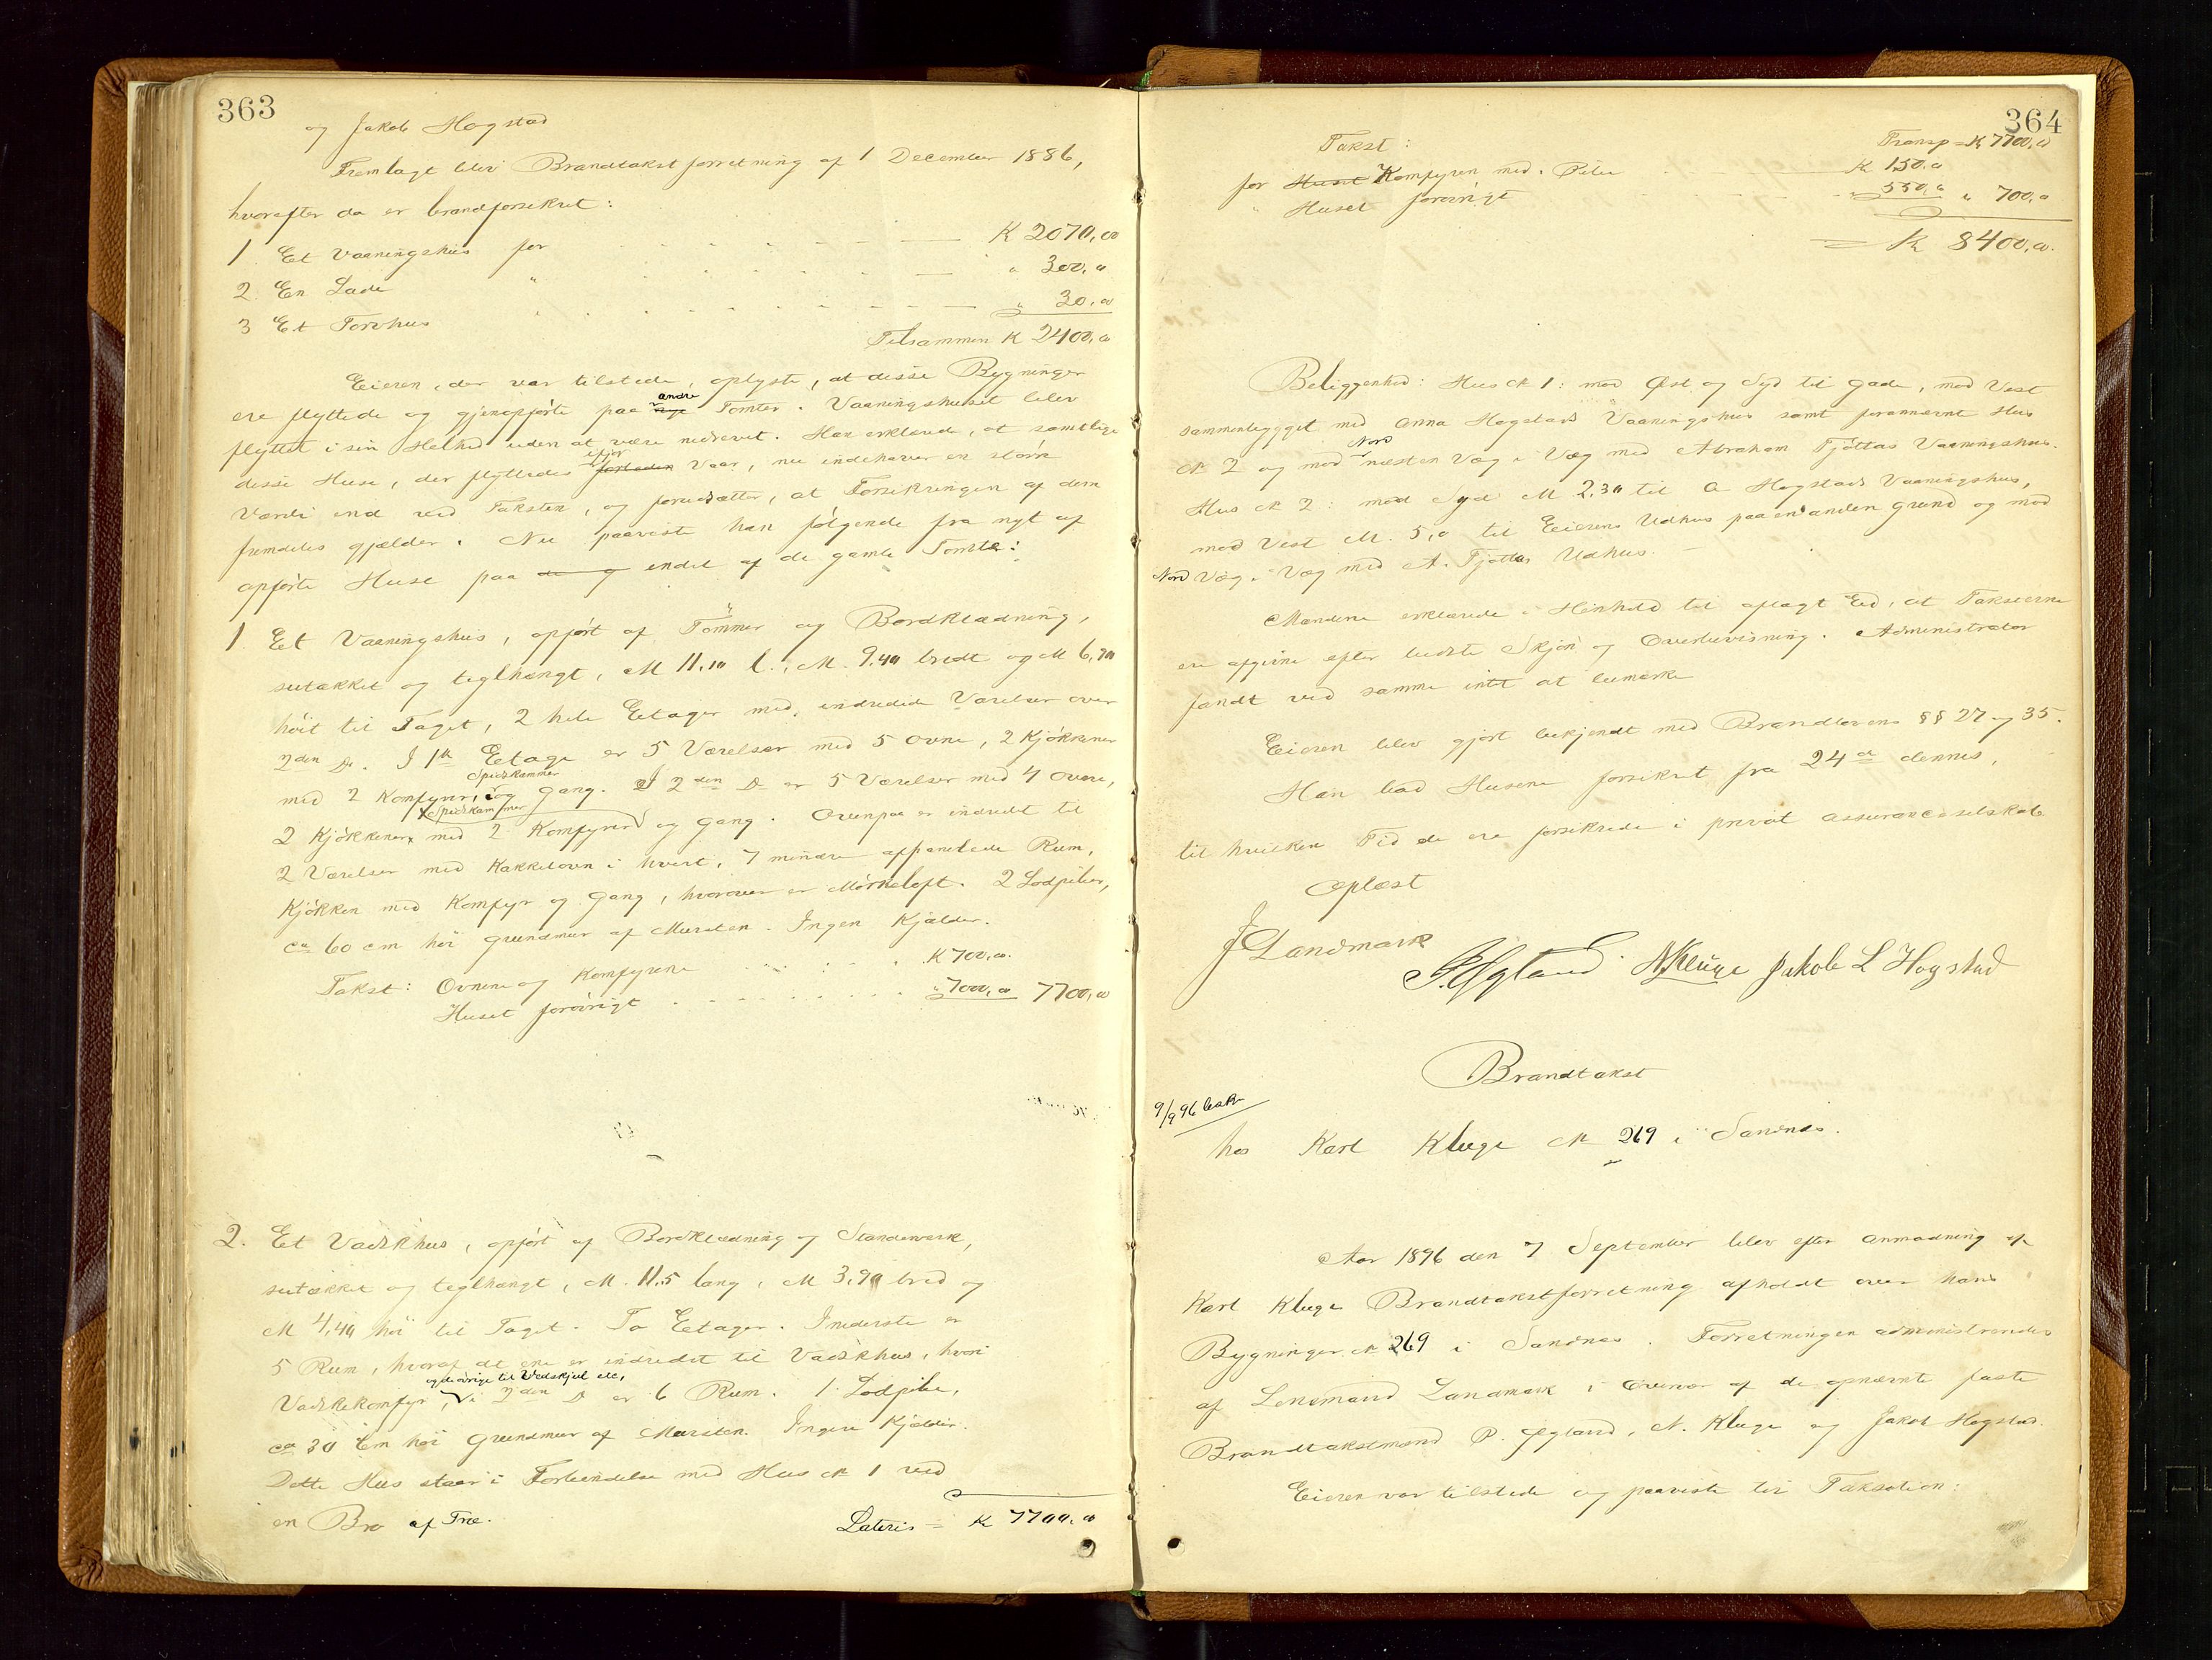 363
og Jakob Hogstad
Fremlagt blev Brandtakstforretning af 1 December 1886,
hvorefter da er brandforsikret:
1. Et Vaaningshus for — K 2070,00
2. En Lade " — " 300,00
3 Et Torvhus " — " 30,00
Tilsammen K 2400,00
Eieren, der var tilstede, oplyste, at disse Bygninger
andre
ere flyttede og gjenopførte paa nye Tomter. Vaaningshuset blev
flyttet i sin Helhed uden at være nedrevet. Han erklærede, at samtlige
ifjor
disse Huse, der flyttedes forleden Vaar, nu indehaver en større
Værdi end ved Taksten, og forudsætter, at Forsikringen af dem
fremdeles gjælder. Nu paaviste han følgende fra nyt af
opførte Huse paa de g endel af de gamle Tomter:
1. Et Vaaningshus, opført af Tømmer og Bordklædning,
sutækket og teglhængt, M 11,10 l., M. 9,40 bredt og M 6,70
høit til Taget, 2 hele Etager med indredede Værelser over
2den Do. I 1ste Etage er 5 Værelser med 5 Ovne, 2 Kjøkkener
Spiskammer
med 2 Komfyrer, og Gang. I 2den Do er 5 Værelser med 4 Ovne,
Spiskammer
2 Kjøkkener med 2 Komfyrer og Gang. Ovenpaa er indredt til
2 Værelser med Kakkelovn i hvert, 7 mindre appanelede Rum,
Kjøkken med Komfyr og Gang, hvorover er Mørkeloft. 2 Lodpiber,
ca 60 cm høi Grundmur af Mursten. Ingen Kjælder.
Takst: Ovnene og Komfyrene K 700,00.
Huset forøvrigt " 7000,00 7700,00
2. Et Vadskhus, opført af Bordklædning og Standerverk,
sutækket og teglhængt, M. 11.5 lang, M 3,90 bred og
M 4,40 høi til Taget. To Etager. I nederste er
5 Rum, hvoraf det ene er indredet til Vadskhus, hvori
og de øvrige til Vedskjul etc,
Vadskekomfyr, i 2den Do er 6 Rum. 1 Lodpibe,
ca 30 Cm høi Grundmur af Mursten. Ingen Kjælder.
Dette Hus staar i Forbindelse med Hus No 1 ved
en Bro af Træ. Lateris = K 7700,00
364
Takst: Transp = K 7700,00
for Huset Komfyren med Pibe — K 150,00
" Huset forøvrigt — " 550,00 " 700,00
= K 8400,00.
Beliggenhed: Hus No 1: mod Øst og Syd til Gade, mod Vest
sammenbygget med Anna Hogstads Vaaningshus samt forannævnt Hus
Nord
No 2 og mod næsten Væg i Væg med Abraham Tjøttas Vaaningshus.
Hus No 2: mod Syd M 2.30 til A Hogstads Vaaningshus,
mod Vest M. 5,0 til Eierens Udhus paa en anden Grund og mod
Nord Væg i Væg med A. Tjøttas Udhus. —
Mændene erklærede i Henhold til aflagt Ed, at Taksterne
ere afgivne efter bedste Skjøn og Overbevisning. Administrator
fandt ved samme intet at bemærke
Eieren blev gjort bekjendt med Brandlovens §§ 27 og 35.
Han bad Husene forsikret fra 24de dennes,
til hvilken Tid de ere forsikrede i privat Assuranceselskab
Oplæst
J Landmark
P. Øgland. N Kluge Jakob L Hogstad
Brandtakst
9/9 96 besk.
hos Karl Kluge No 269 i Sandnæs.
Aar 1896 den 7 September blev efter Anmodning af
Karl Kluge Brandtakstforretning afholdt over hans
Bygninger No 269 i Sandnæs. Forretningen administreredes
af Lensmand Landmark i Overvær af de opnævnte faste
Brandtakstmænd P. Øgland, N. Kluge og Jakob Hogstad.
Eieren var tilstede og paaviste til Taksation: